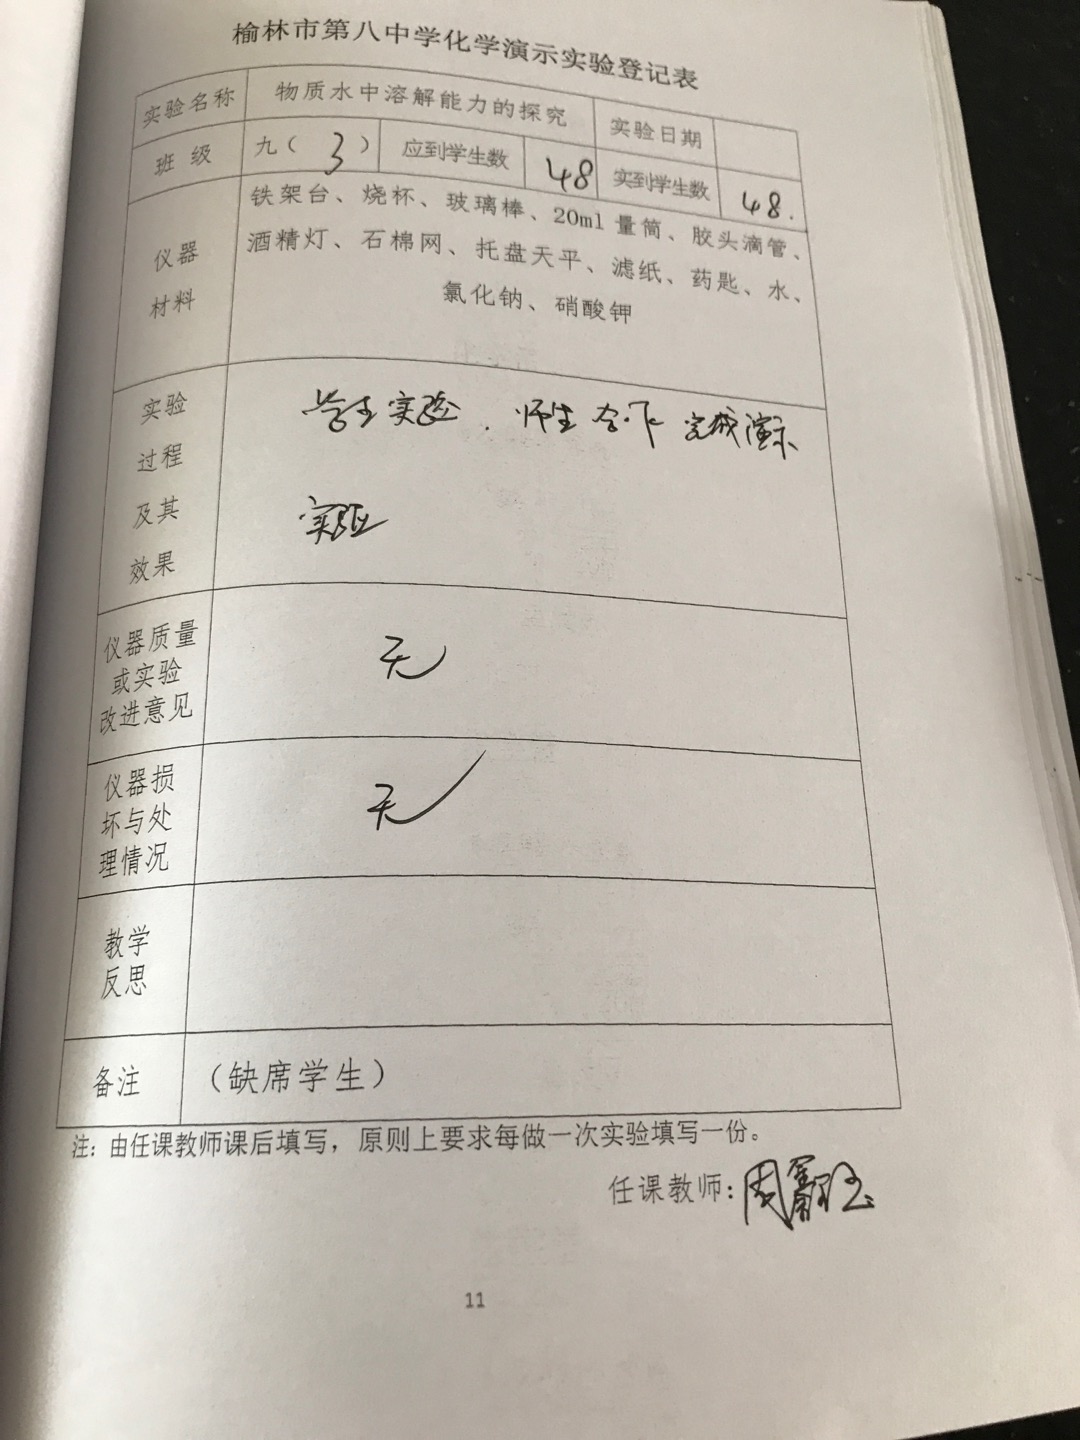 榆林市第八中学化学演示实验登记表
实验名称 物质水中溶解能力的探究 实验日期
班 级 九( 3 ) 应到学生数 48 实到学生数 48.
仪器
材料
铁架台、烧杯、玻璃棒、20ml 量筒、胶头滴管、
酒精灯、石棉网、托盘天平、滤纸、药匙、水、
氯化钠、硝酸钾
实验
过程
及其
效果
学生实验. 师生合作完成演示
实验
仪器质量
或实验
改进意见
无
仪器损
坏与处
理情况
无
教学
反思
备注 (缺席学生)
注: 由任课教师课后填写, 原则上要求每做一次实验填写一份。
任课教师: 周
11